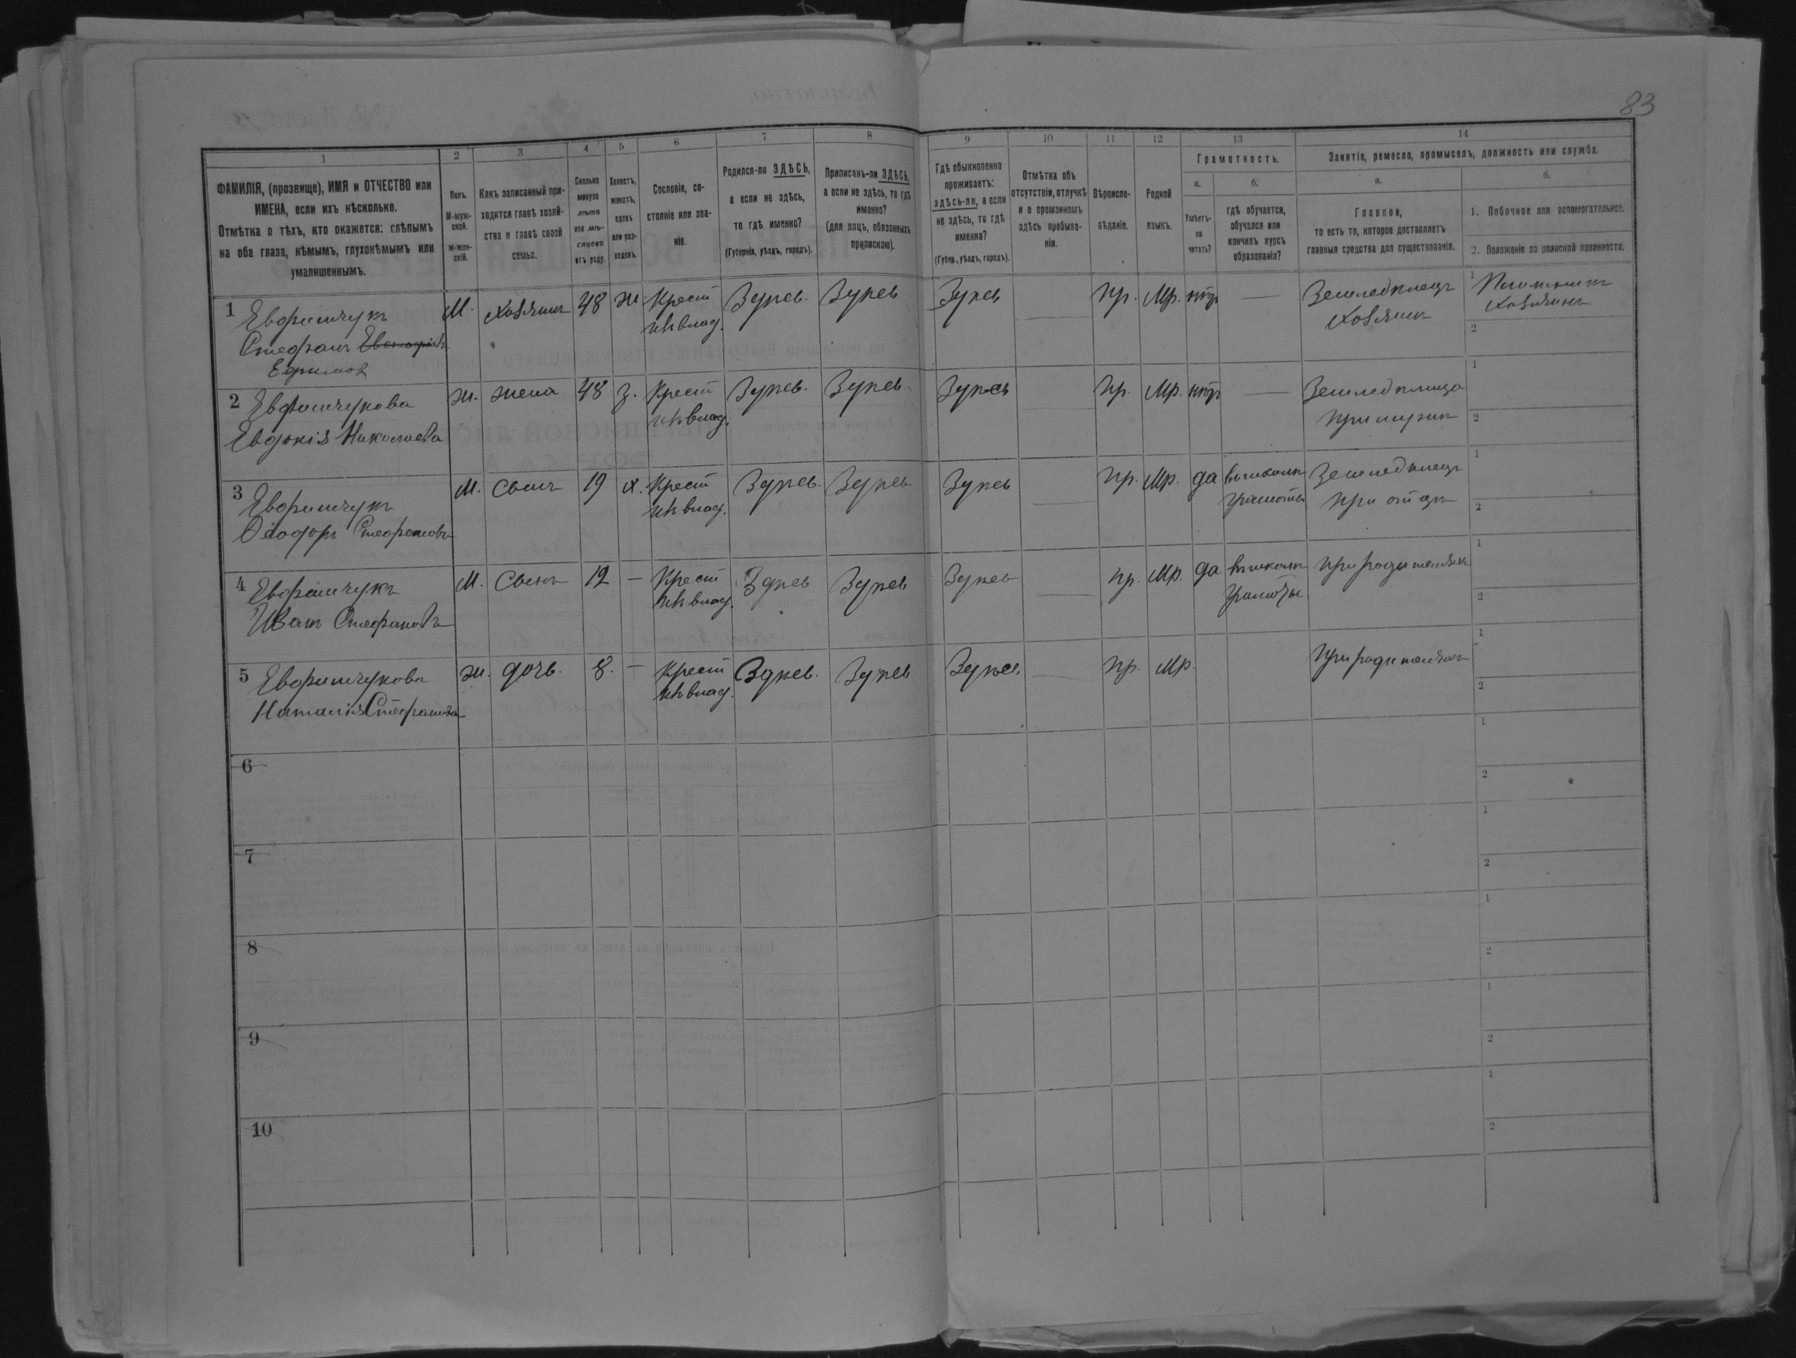 83
1
2
3
4
5
6
7
8
9
10
11
12
13
14
ФАМИЛІЯ, (прозвище), ИМЯ и ОТЧЕСТВО или
ИМЕНА, если ихъ нѣсколько.
Отмѣтка о тѣхъ, кто окажется: слѣпымъ
на оба глаза, нѣмымъ, глухонѣмымъ или
умалишеннымъ.
Полъ.
М-муж-
ской.
Ж-жен-
скій.
Какъ записанный при-
ходится главѣ хозяй-
ства и главѣ своей
семьи.
Сколько
минуло
лѣтъ
или мѣ-
сяцевъ
отъ роду.
Холостъ,
женатъ,
вдовъ
или раз-
веденъ.
Сословіе, со-
стояніе или зва-
ніе.
Родился-ли ЗДѢСЬ,
а если не здѣсь,
то гдѣ именно?
(Губернія, уѣздъ, городъ).
Приписанъ-ли ЗДѢСЬ,
а если не здѣсь, то гдѣ
именно?
(для лицъ, обязанныхъ
припискою).
Гдѣ обыкновенно
проживаетъ:
здѣсь-ли, а если
не здѣсь, то гдѣ
именно?
(Губер., уѣздъ, городъ).
Отмѣтка объ
отсутствіи, отлучкѣ
и о временномъ
здѣсь пребыва-
ніи.
Вѣроиспо-
вѣданіе.
Родной
языкъ.
Грамотность.
а.
Умѣетъ-
ли
читать?
б.
гдѣ обучается,
обучался или
кончилъ курсъ
образованія?
Занятіе, ремесло, промыселъ, должность или служба.
а.
Главное,
то есть то, которое доставляетъ
главныя средства для существованія.
б.
1. Побочное или вспомогательное.
2. Положеніе по воинской повинности.
1 Евфимчукъ М. хозяинъ 48 ж Крест Здѣсь Здѣсь Здѣсь — пр. Мр. нѣтъ — Земледѣлецъ 1
Стефанъ из влад. хозяинъ хозяинъ
Ефимовъ 2
2 Евфимчукова ж. жена 48 з. Крест Здѣсь Здѣсь Здѣсь — пр. Мр. нѣтъ — Земледѣлица 1
Евдокія Николаева из влад. при мужѣ 2
3 Евфимчукъ М. сынъ 19 х. Крест Здѣсь Здѣсь Здѣсь — пр. Мр. да въ школѣ Земледѣлецъ 1
Ѳеодоръ Стефановъ из влад. грамоты при отцѣ 2
4 Евфимчукъ М. сынъ 12 — Крест Здѣсь Здѣсь Здѣсь — пр. Мр. да въ школѣ при родителяхъ 1
Иванъ Стефановъ из влад. грамоты 2
5 Евфимчукова ж. дочь 8. — Крест Здѣсь Здѣсь Здѣсь — пр. Мр. при родителяхъ 1
Наталія Стефанова из влад. 2
6 1
2
7 1
2
8 1
2
9 1
2
10 1
2